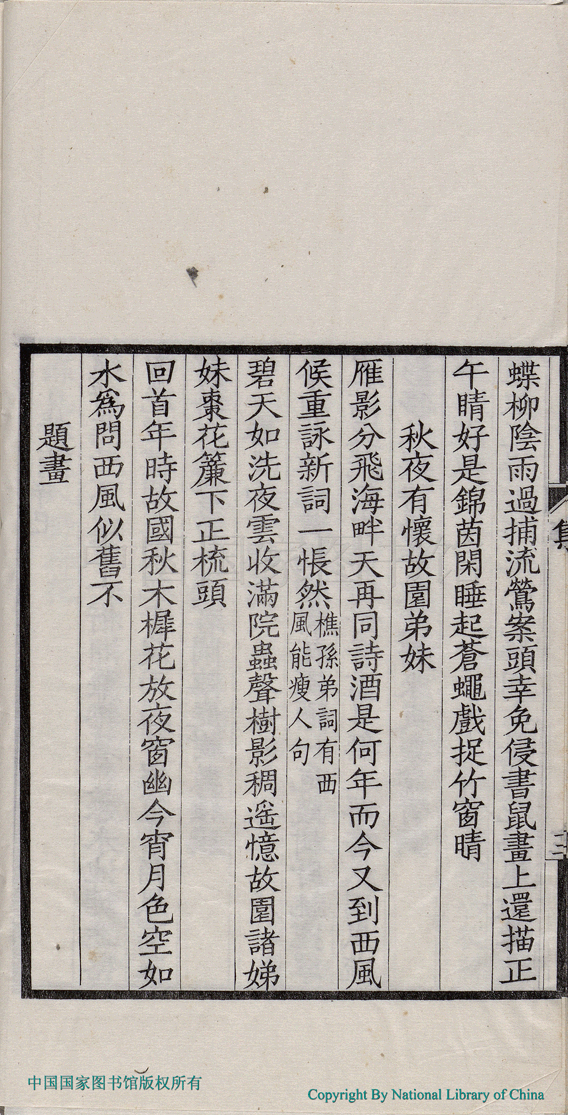 蝶柳陰雨過捕流鶯案頭幸免侵書鼠畫上還描正
午睛好是錦茵閑睡起蒼蠅戲捉竹窗晴
秋夜有懷故園弟妹
雁影分飛海畔天再同詩酒是何年而今又到西風
候重詠新詞一悵然樵孫弟詞有西
風能瘦人句
碧天如洗夜雲收滿院蟲聲樹影稠遥憶故園諸娣
妹棗花簾下正梳頭
回首年時故國秋木樨花放夜窗幽今宵月色空如
水爲問西風似舊不
題畫
集
三
中国国家图书馆版权所有
Copyright By National Library of China